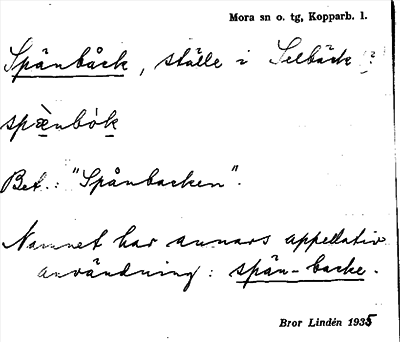 Mora sn o. tg, Kopparb. l.
Spånbåck, ställe i Selbäck :
spæ̀nbók
Bet.: "Spånbacken".
Namnet har annars appellativ
användning : spån-backe.
Bror Lindén 1935